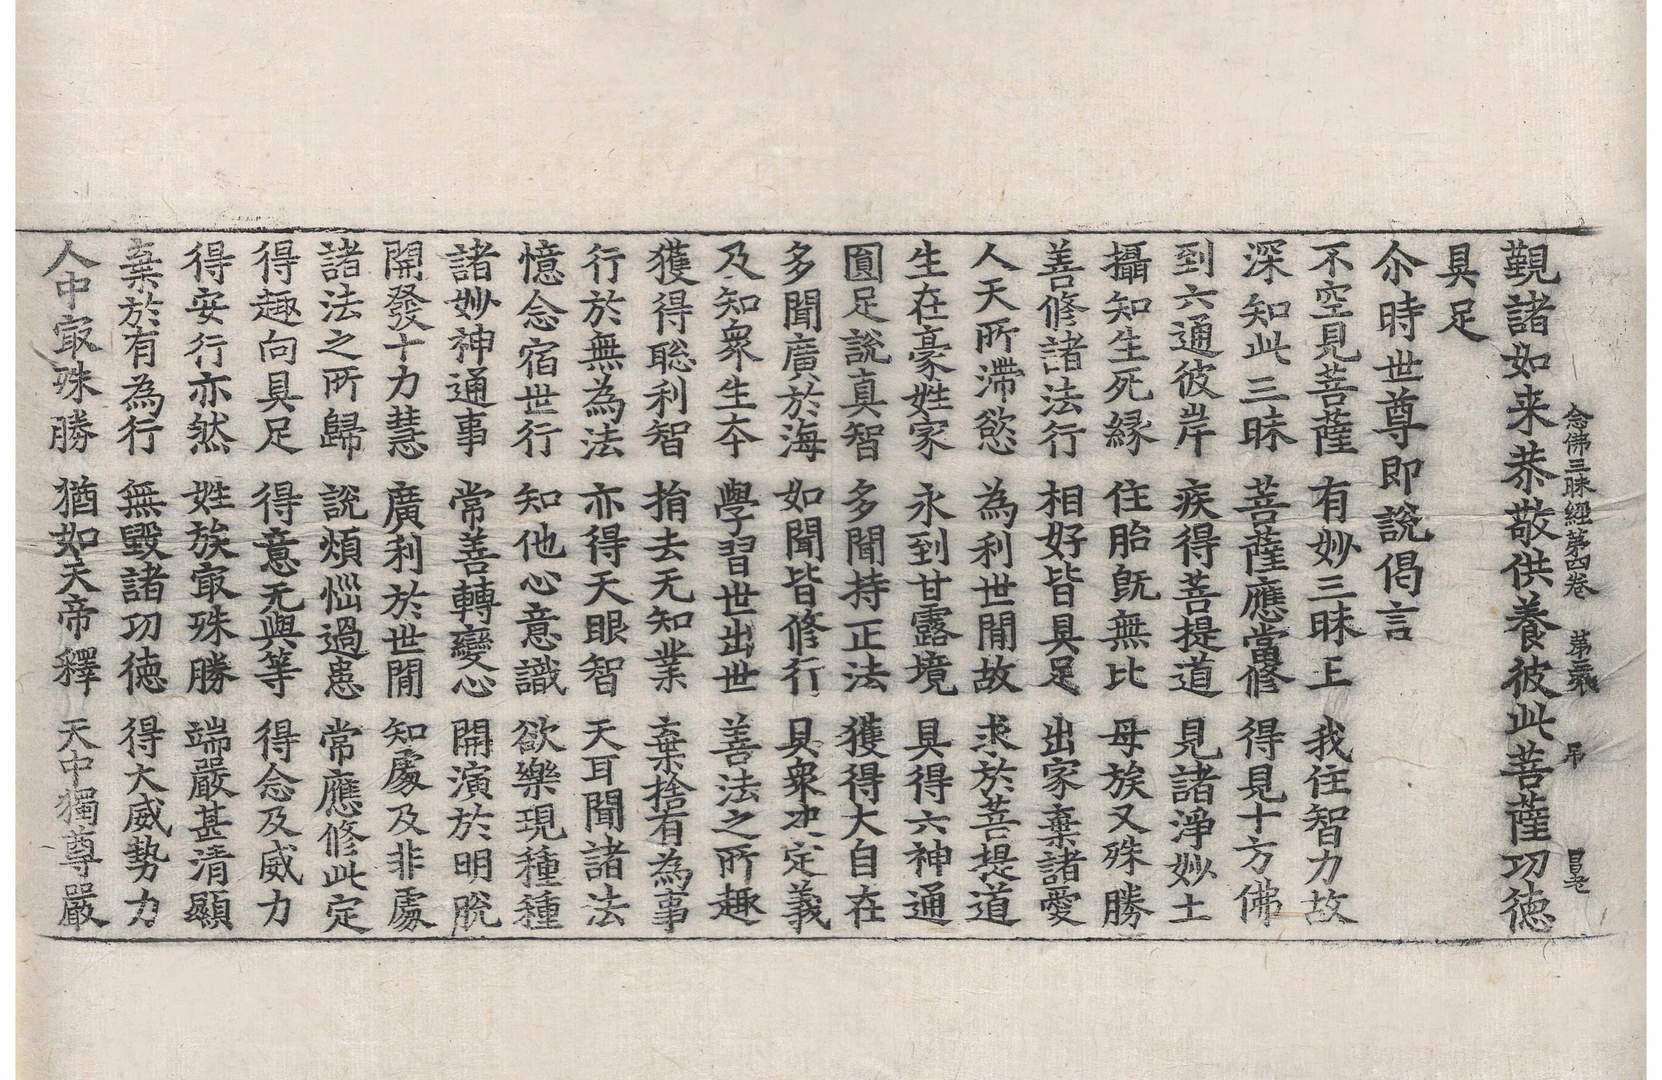 念佛三昧經第四卷 第 張 弔
覲諸如来恭敬供養彼此菩薩功德
具足
尒時世尊即說偈言
不空見菩薩 有妙三昧王 我住智力故
深知此三昧 菩薩應當修 得見十方佛
到六通彼岸 疾得菩提道 見諸淨妙土
攝知生死緣 住胎旣無比 母族又殊勝
善修諸法行 相好皆具足 出家棄諸愛
人天所滯慾 為利世閒故 求於菩提道
生在豪姓家 永到甘露境 具得六神通
圓足說真智 多聞持正法 獲得大自在
多聞廣於海 如聞皆修行 具衆決定義
及知衆生夲 學習世出世 善法之所趣
獲得聡利智 捐去无知業 棄捨有為事
行於無為法 亦得天眼智 天耳聞諸法
憶念宿世行 知他心意識 欲樂現種種
諸妙神通事 常善轉變心 開演於明脫
開發十力慧 廣利於世閒 知處及非處
諸法之所歸 說煩惱過患 常應修此定
得趣向具足 得意无與等 得念及威力
得安行亦然 姓族㝡殊勝 端嚴甚清顯
棄於有為行 無毀諸功德 得大威勢力
人中㝡殊勝 猶如天帝釋 天中獨尊嚴